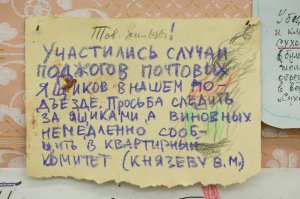 Тов. жильцы!
УЧАСТИЛИСЬ СЛУЧАИ
ПОДЖОГОВ ПОЧТОВЫХ
ЯЩИКОВ В НАШЕМ ПО-
ДЪЕЗДЕ. ПРОСЬБА СЛЕДИТЬ
ЗА ЯЩИКАМИ, А ВИНОВНЫХ
НЕМЕДЛЕННО СООБ-
ЩИТЬ В КВАРТИРНЫЙ
КОМИТЕТ (КНЯЗЕВУ В.М.)